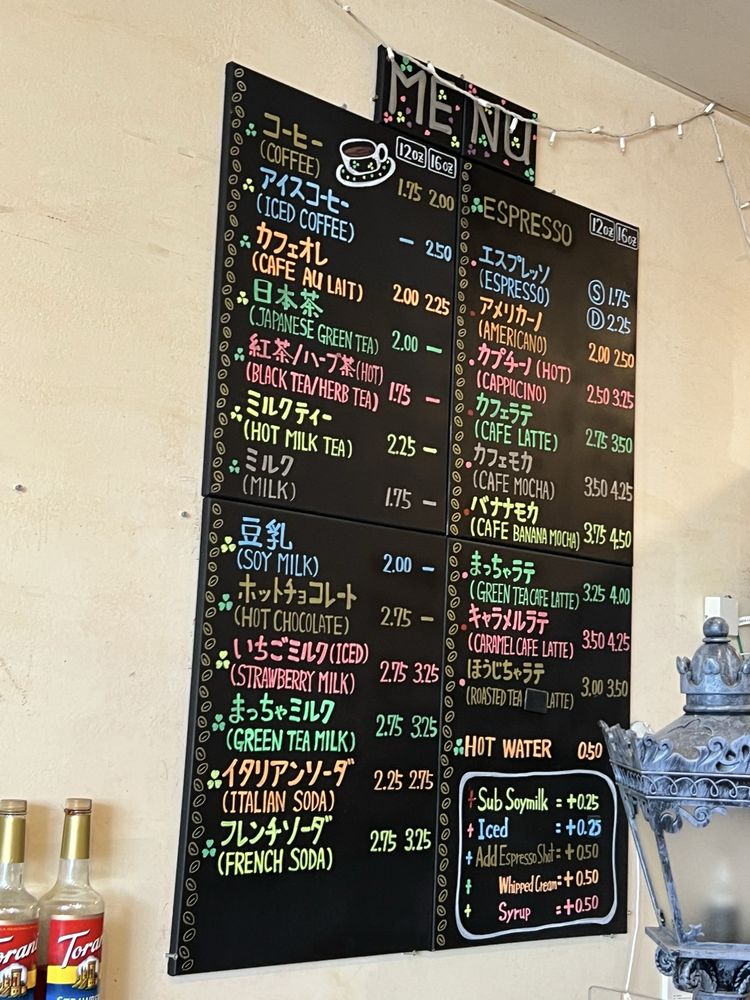 MENU
コーヒー
(COFFEE)
12oz 16oz
1.75 2.00
アイスコーヒー
(ICED COFFEE)
— 2.50
カフェオレ
(CAFE AU LAIT)
2.00 2.25
日本茶
(JAPANESE GREEN TEA)
2.00 —
紅茶/ハーブ茶(HOT)
(BLACK TEA/HERB TEA)
1.75 —
ミルクティー
(HOT MILK TEA)
2.25 —
ミルク
(MILK)
1.75 —
豆乳
(SOY MILK)
2.00 —
ホットチョコレート
(HOT CHOCOLATE)
2.75 —
いちごミルク(ICED)
(STRAWBERRY MILK)
2.75 3.25
まっちゃミルク
(GREEN TEA MILK)
2.75 3.25
イタリアンソーダ
(ITALIAN SODA)
2.25 2.75
フレンチソーダ
(FRENCH SODA)
2.75 3.25
ESPRESSO
12oz 16oz
エスプレッソ
(ESPRESSO)
S 1.75
D 2.25
アメリカーノ
(AMERICANO)
2.00 2.50
カプチーノ(HOT)
(CAPPUCINO)
2.50 3.25
カフェラテ
(CAFE LATTE)
2.75 3.50
カフェモカ
(CAFE MOCHA)
3.50 4.25
バナナモカ
(CAFE BANANA MOCHA)
3.75 4.50
まっちゃラテ
(GREEN TEA CAFE LATTE)
3.25 4.00
キャラメルラテ
(CARAMEL CAFE LATTE)
3.50 4.25
ほうじちゃラテ
(ROASTED TEA LATTE)
3.00 3.50
HOT WATER 0.50
+ Sub Soymilk = +0.25
+ Iced = +0.25
+ Add Espresso Shot = +0.50
+ Whipped Cream = +0.50
+ Syrup = +0.50
Torani